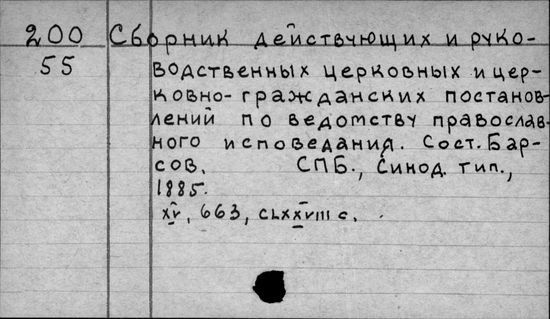 200 Сборник действующих и руко-
55
водственных церковных и цер-
ковно-гражданских постанов-
лений по ведомству православ-
ного исповедания. Сост. Бар-
сов. СПБ., Синод. тип.,
1885.
XV, 663, CLXXVIII с.